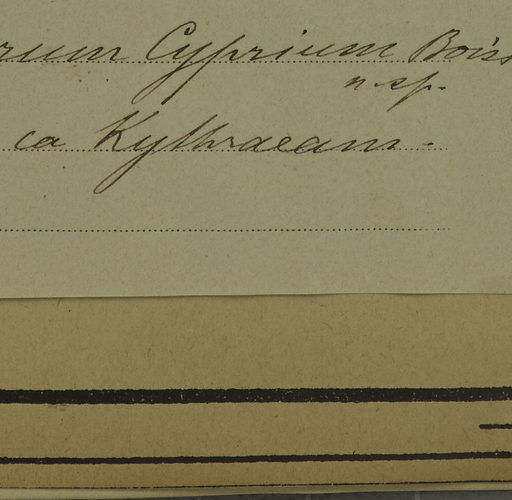 rum Cyprium Boiss
n. sp.
ca Kythraeam.